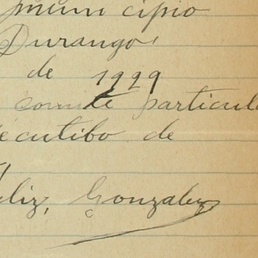 municipio
Durango
de 1929
comite particul
ecutibo de
liz, Gonzalez